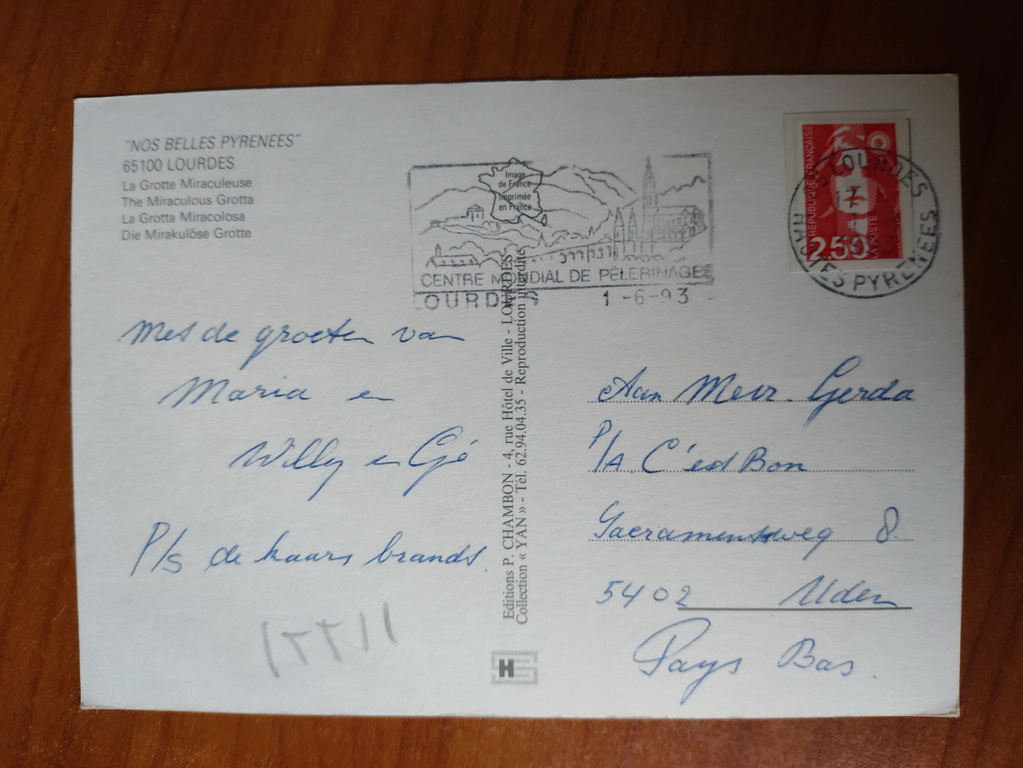 "NOS BELLES PYRENEES"
65100 LOURDES
La Grotte Miraculeuse
The Miraculous Grotta
La Grotta Miracolosa
Die Mirakulöse Grotte
Image
de France
Imprimée
en France
CENTRE MONDIAL DE PÈLERINAGE
LOURDES 1-6-93
RÉPUBLIQUE FRANÇAISE
2.50
LA POSTE
LOURDES
HAUTES PYRENEES
Met de groeten van
Maria en
Willy en Gé
P/s de kaars brandt.
Editions P. CHAMBON - 4, rue Hôtel de Ville - LOURDES
Collection « YAN » - Tél. 62.94.04.35 - Reproduction interdite
Aan Mevr. Gerda
P/A C'est Bon
Sacramentsweg 8.
5402 Uden
Pays Bas.